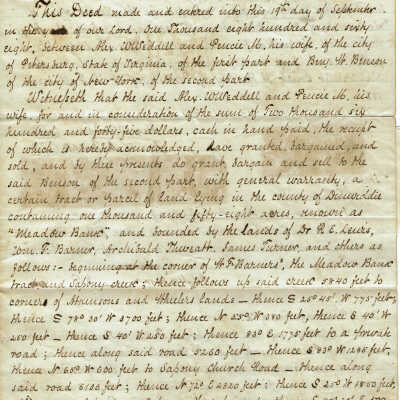 This Deed made and entered into this 19th day of September
in the year of our Lord, One Thousand eight hundred and sixty
eight, between Alex. W. Weddell and Pencie M, his wife, of the city
of Petersburg, State of Virginia, of the first part and Benj. H. Benson
of the city of New York, of the second part
Witnesseth that the said Alex. W. Weddell and Pencie M, his
wife, for and in consideration of the sum of Two thousand six
hundred and forty-five dollars, cash in hand paid, the receipt
of which is hereby acknowledged, have granted, bargained, and
sold, and by these presents do grant, bargain and sell to the
said Benson of the second part, with general warranty, a
certain tract or parcel of land lying in the county of Dinwiddie
containing one thousand and fifty-eight acres, known as
"Meadow Bank", and bounded by the lands of Dr R. E. Lewis,
Wm. F. Barner, Archibald Thweatt, James Turner, and others as
follows:- Beginning at the corner of W. F. Barner's, the Meadow Bank
tract and Sapony creek; thence follows up said creek 5840 feet to
corner of Atkinsons and Wheelers lands - thence S 25° 45' W 775 feet;
thence S 78° 20' W 3700 feet; thence N 25° W 980 feet, thence S 40° W
250 feet - thence S 40° W 250 feet; thence 83° E 1775 feet to a private
road; thence along said road 5260 feet - thence S 83° W 1285 feet,
thence N 60° W 600 feet to Sapony Church Road - thence along
said road 6100 feet; thence N 72° E 2320 feet; thence S 25° W 1850 feet,